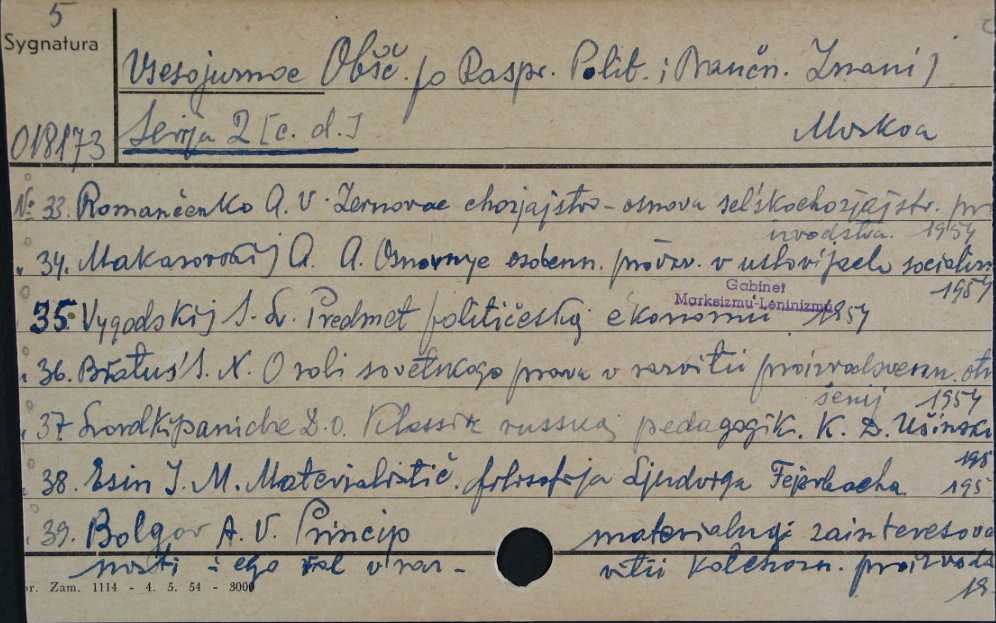 5
Sygnatura
Vsesojuznoe Obšč. po Raspr. Polit. i Naučn. Znanij
018173
Serija 2 [c. d.]
Moskva
№ 33. Romančenko A. V. Zernovoe chozjajstvo - osnova sel'skochozjajstv. pr
izvodstva. 1954
34. Makarovskij A. A. Osnovnye osobenn. proizv. v uslovijach socializm
1954
Gabinet
Marksizmu-Leninizmu
35. Vygodskij S. L. Predmet političeskoj ekonomii 1954
36. Bratus' S. N. O roli sovetskogo prava v razvitii proizvodstvenn. otn
šenij 1954
37. Lordkipanidze D. O. Klassik russkoj pedagogiki K. D. Ušinski
195
38. Esin I. M. Materialistič. filosofija Ljudviga Fejerbacha 195
39. Bolgov A. V. Princip material'noj zainteresova
nosti i ego rol' v raz- vitii kolchozn. proizvods
r. Zam. 1114 - 4. 5. 54 - 3000
19